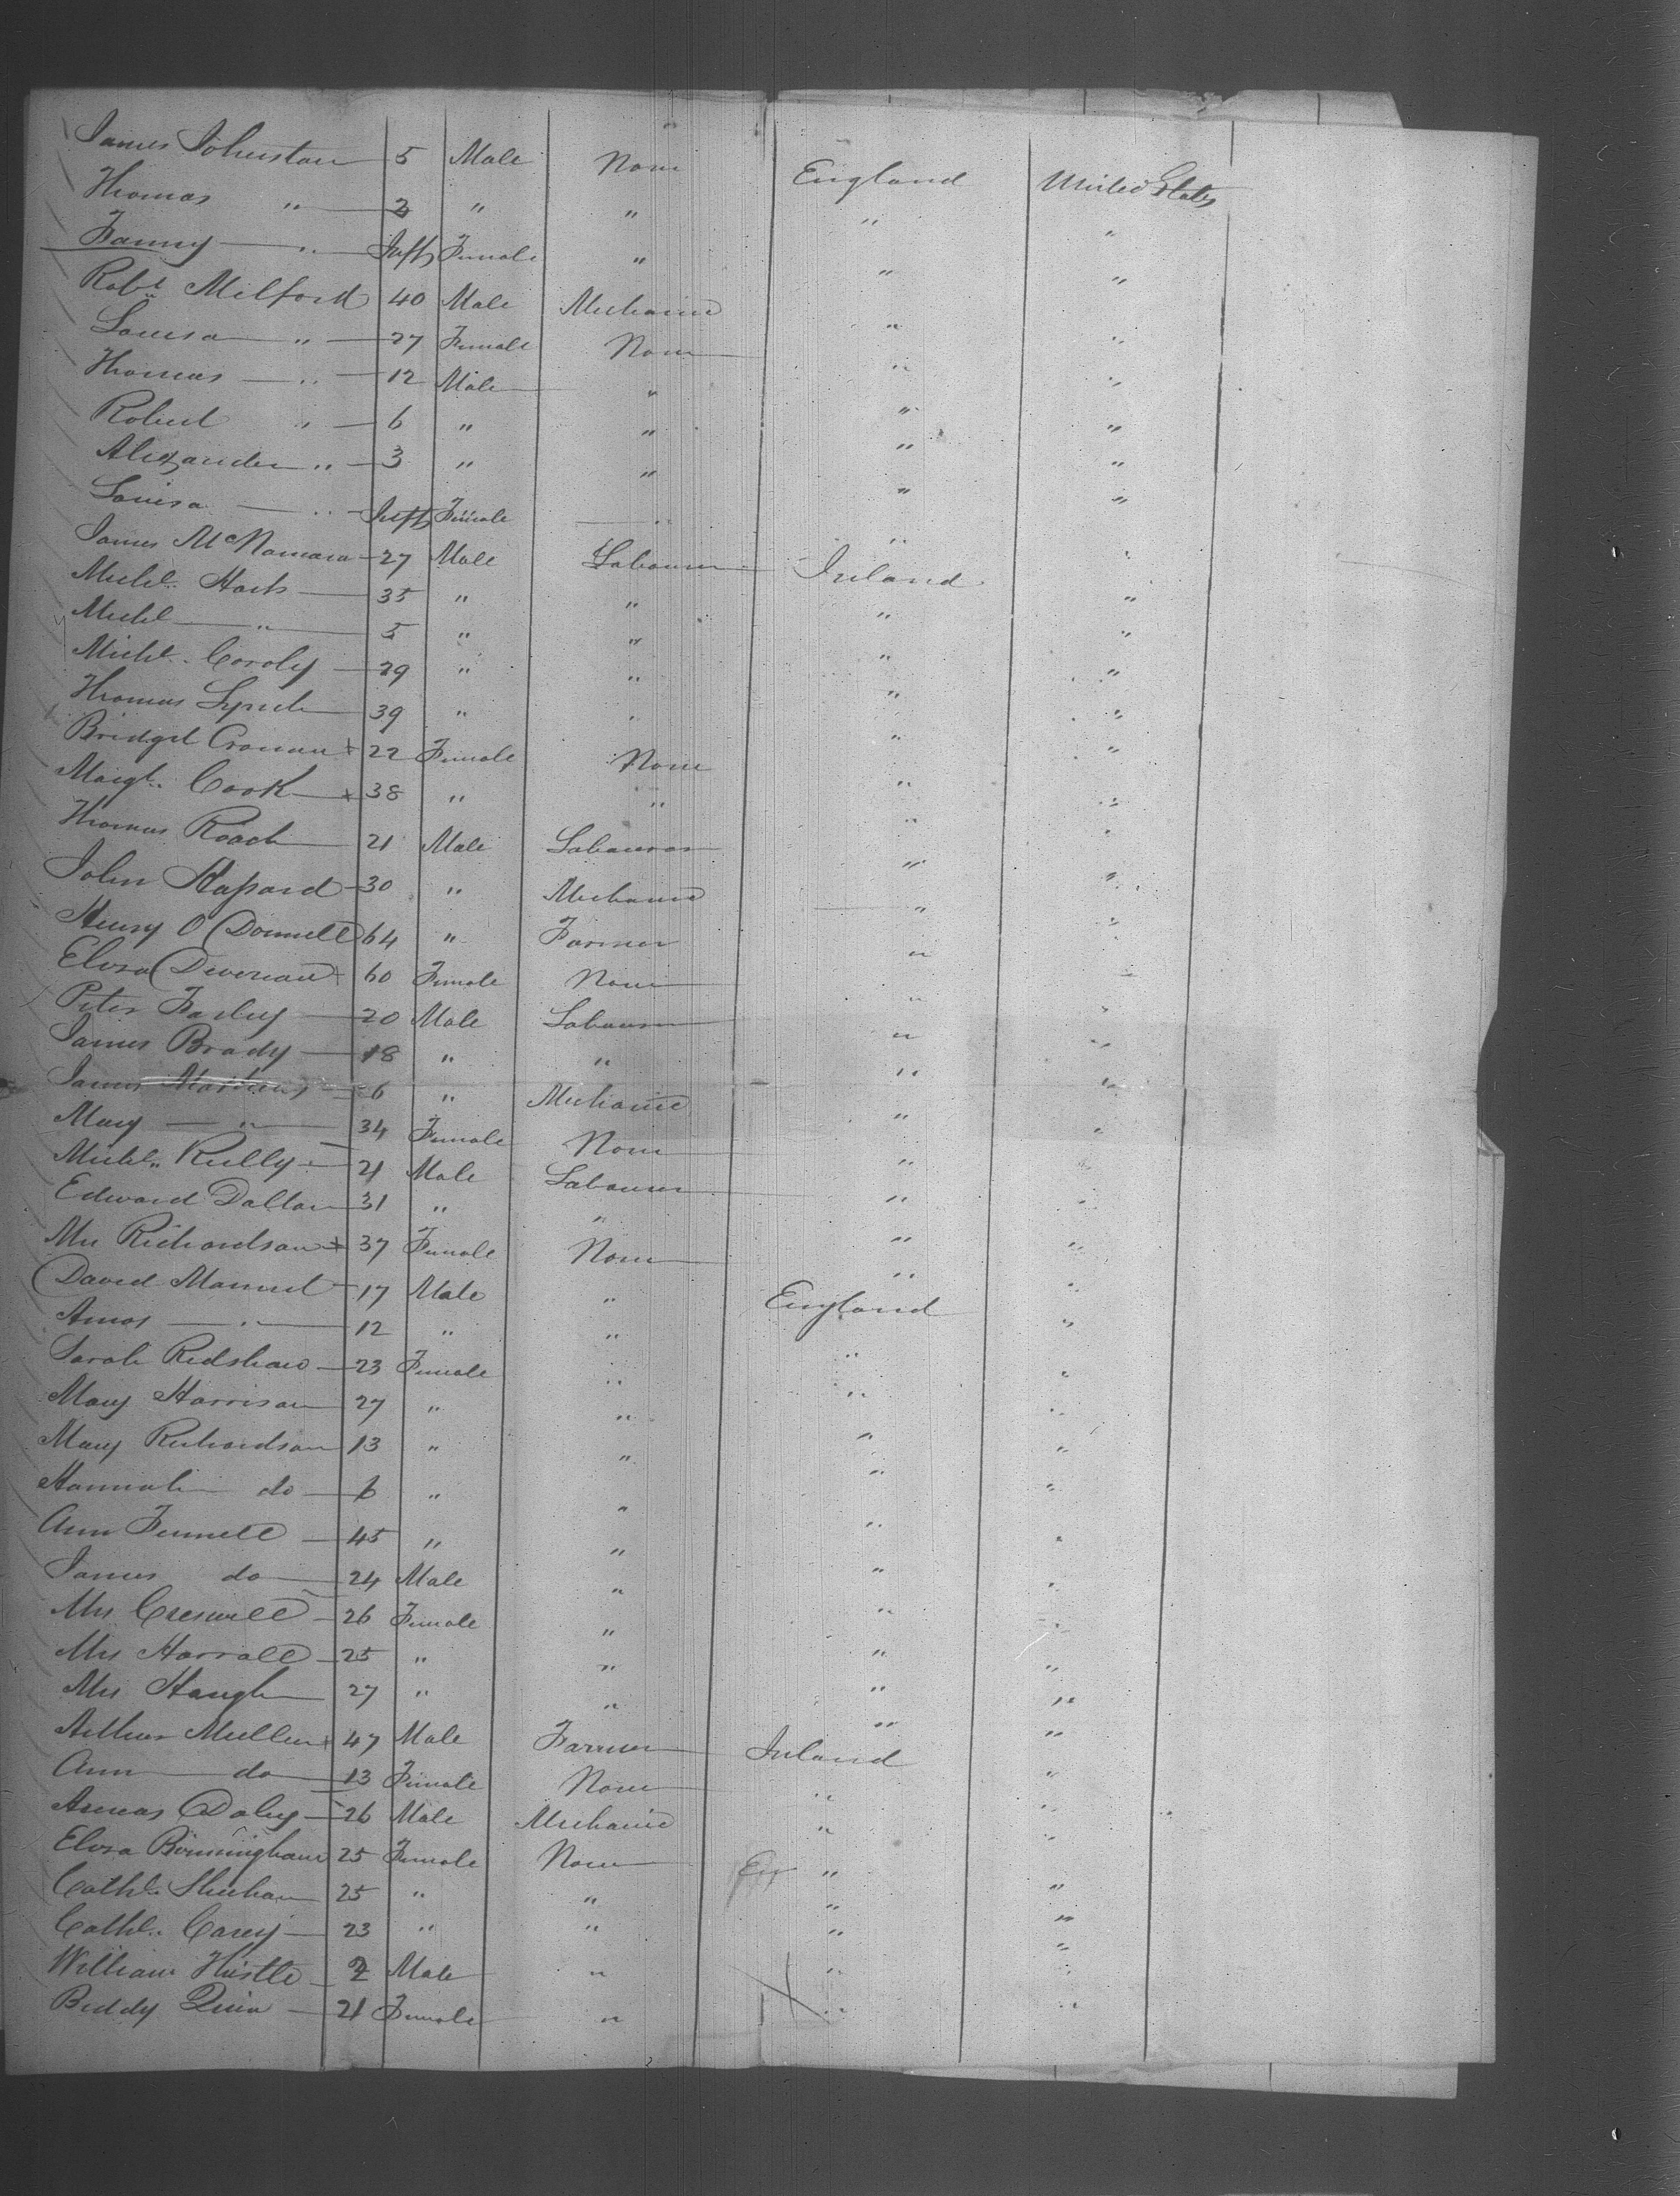 James Johnston 5 Male None England United States
Thomas " 2 " " " "
Fanny " Inft Female " " "
Robt Milford 40 Male Mechanic " "
Louisa " 27 Female None " "
Thomas " 12 Male " " "
Robert " 6 " " " "
Alexander " 3 " " " "
Louisa " Inft Female " " "
James McNamara 27 Male Labourer Ireland "
Michl 35 " " " "
Michl " 5 " " " "
Michl 29 " " " "
Thomas Lynch 39 " " " "
Bridget Cronan 22 Female None " "
Margt Cook 38 " " " "
Thomas Roach 21 Male Labourer " "
John 30 " Mechanic " "
Henry O Donnell 64 " Farmer " "
Eliza Devereaux 60 Female None " "
Peter Farley 20 Male Labourer " "
James Brady 18 " " " "
James Mathews 6 " Mechanic " "
Mary " 34 Female None " "
Michl Reilly 21 Male Labourer " "
Edward Dalton 31 " " " "
Mrs Richardson 37 Female None " "
David Manuel 17 Male " England "
Amos " 12 " " " "
Sarah Redshaw 23 Female " " "
Mary Harrison 27 " " " "
Mary Richardson 13 " " " "
Hannah do 6 " " " "
Ann Fennell 45 " " " "
James do 24 Male " " "
Mrs Creswell 26 Female " " "
Mrs Harrall 25 " " " "
Mrs Haugh 27 " " " "
Arthur Mullen 47 Male Farmer Ireland "
Ann do 13 Female None " "
Aeneas Daley 26 Male Mechanic " "
Eliza Birmingham 25 Female None " "
Cathe Sheehan 25 " " " "
Cathe Carey 23 " " " "
William 2 Male " " "
Biddy Quin 21 Female " " "